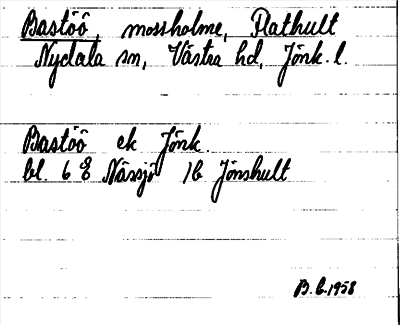 Bastöö, mossholme, Plathult
Nydala sn, Västra hd, Jönk. l.
Bastöö ek Jönk.
bl. 6 E Nässjö 1b Jönshult
B.E.1958